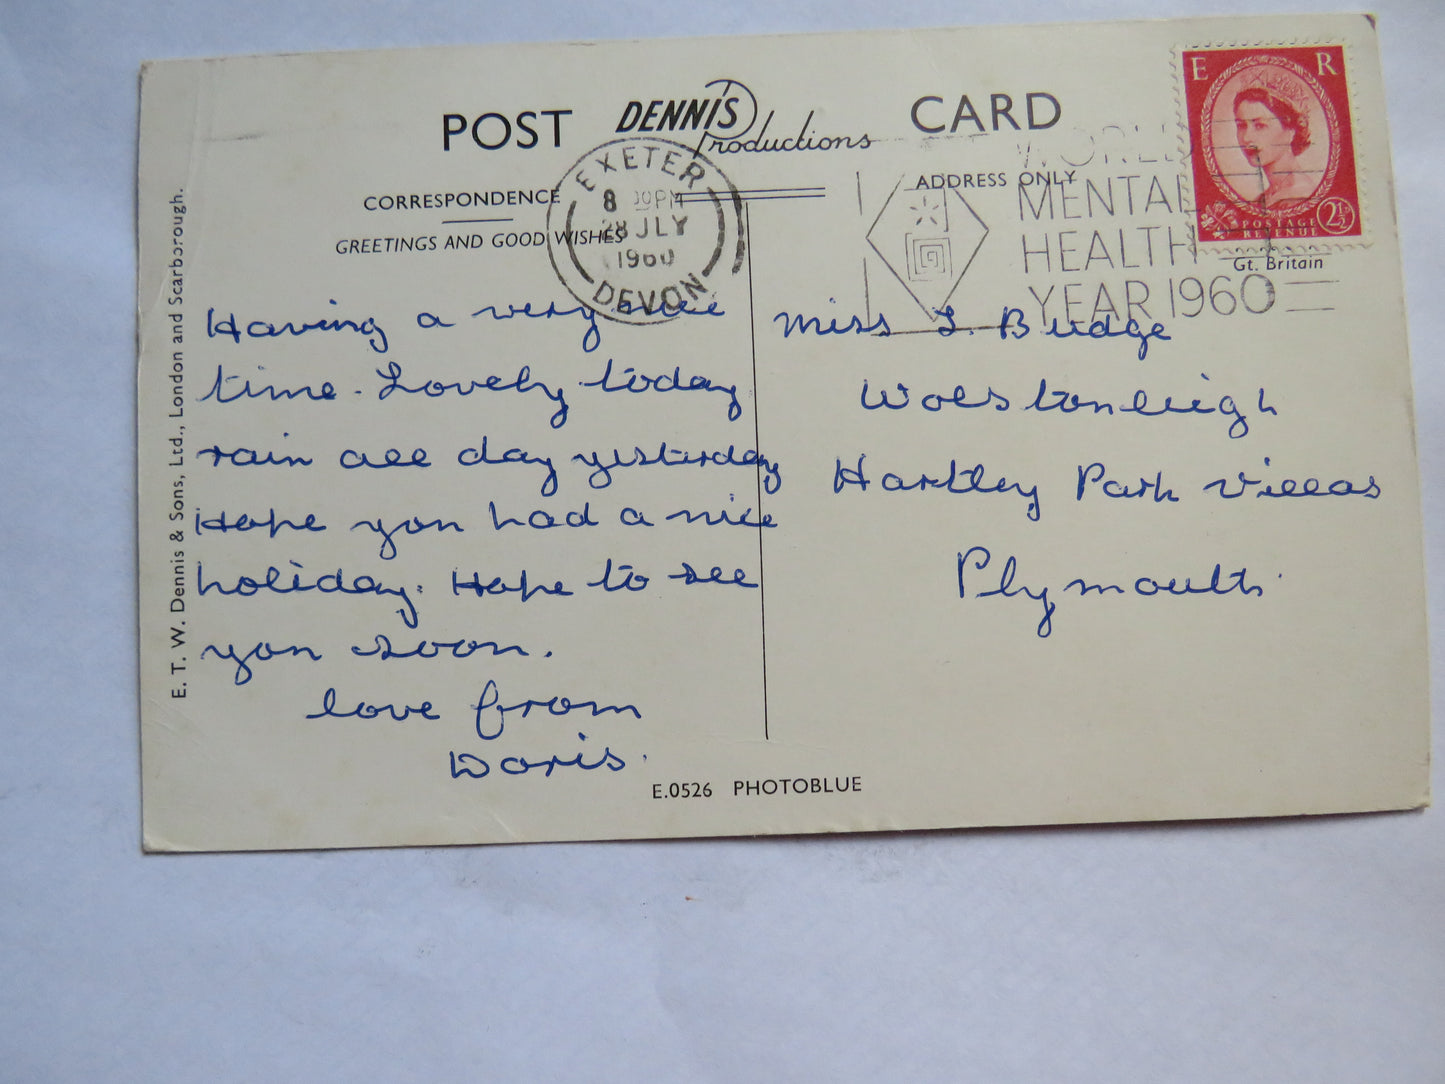 POST DENNIS Productions CARD
CORRESPONDENCE
GREETINGS AND GOOD WISHES
ADDRESS ONLY
Gt. Britain
E R
POSTAGE 2½
REVENUE
EXETER
8 PM
28 JLY
1960
DEVON
WORLD
MENTAL
HEALTH
YEAR 1960
Having a very nice
time. Lovely today
rain all day yesterday
Hope you had a nice
holiday. Hope to see
you soon.
love from
Doris.
Miss L. Budge
Wolstonleigh
Hartley Park Villas
Plymouth.
E.0526 PHOTOBLUE
E. T. W. Dennis & Sons, Ltd., London and Scarborough.